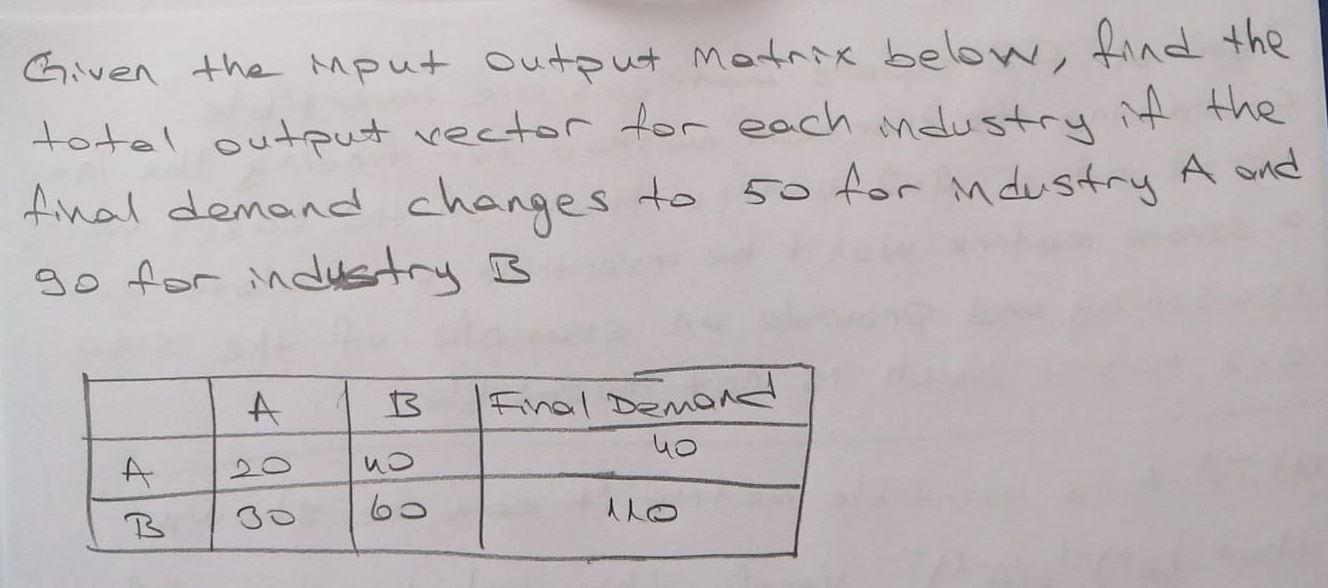 Given the input output matrix below, find the
total output vector for each industry if the
final demand changes to 50 for industry A and
90 for industry B
A B Final Demand
A 20 40 40
B 30 60 110